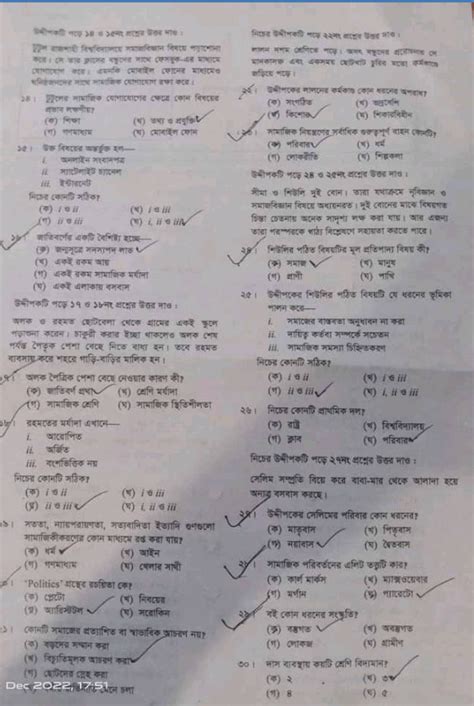 উদ্দীপকটি পড়ে ১৪ ও ১৫নং প্রশ্নের উত্তর দাও :
টুটুল রাজশাহী বিশ্ববিদ্যালয়ে সমাজবিজ্ঞান বিষয়ে পড়াশোনা
করে। সে তার ক্লাসের বন্ধুদের সাথে ফেসবুক-এর মাধ্যমে
যোগাযোগ করে। এমনকি মোবাইল ফোনের মাধ্যমেও
সাথে সামাজিক যোগাযোগ রক্ষা করে।
১৪। টুটুলের সামাজিক যোগাযোগের ক্ষেত্রে কোন বিষয়ের
প্রভাব লক্ষণীয়?
(ক) শিক্ষা (খ) তথ্য ও প্রযুক্তি
(গ) গণমাধ্যম (ঘ) মোবাইল ফোন
১৫। উক্ত বিষয়ের অন্তর্ভুক্ত হল—
i. অনলাইন সংবাদপত্র
ii. স্যাটেলাইট চ্যানেল
iii. ইন্টারনেট
নিচের কোনটি সঠিক?
(ক) i ও ii (খ) i ও iii
(গ) ii ও iii (ঘ) i, ii ও iii
১৬। জাতিবর্ণের একটি বৈশিষ্ট্য হচ্ছে—
(ক) জন্মসূত্রে সদস্যপদ লাভ
(খ) একই রকম আয়
(গ) একই রকম সামাজিক মর্যাদা
(ঘ) একই এলাকায় বসবাস
উদ্দীপকটি পড়ে ১৭ ও ১৮নং প্রশ্নের উত্তর দাও :
অলক ও রহমত ছোটবেলা থেকে গ্রামের একই স্কুলে
পড়াশুনা করেন। চাকুরী করার ইচ্ছা থাকলেও অলক শেষ
পর্যন্ত পৈতৃক পেশা বেছে নিতে বাধ্য হন। তবে রহমত
ব্যবসায় করে শহরে গাড়ি-বাড়ির মালিক হন।
১৭। অলক পৈত্রিক পেশা বেছে নেওয়ার কারণ কী?
(ক) জাতিবর্ণ প্রথা (খ) শ্রেণি মর্যাদা
(গ) সামাজিক শ্রেণি (ঘ) সামাজিক স্থিতিশীলতা
১৮। রহমতের মর্যাদা এখানে—
i. আরোপিত
ii. অর্জিত
iii. বংশভিত্তিক নয়
নিচের কোনটি সঠিক?
(ক) i ও ii (খ) i ও iii
(গ) ii ও iii (ঘ) i, ii ও iii
১৯। সততা, ন্যায়পরায়ণতা, সত্যবাদিতা ইত্যাদি গুণগুলো
সামাজিকীকরণের কোন মাধ্যমে রপ্ত করা যায়?
(ক) ধর্ম (খ) আইন
(গ) গণমাধ্যম (ঘ) খেলার সাথী
'Politics' গ্রন্থের রচয়িতা কে?
(ক) প্লেটো (খ) নিবয়ের
(গ) অ্যারিস্টটল (ঘ) সরোকিন
কোনটি সমাজের প্রত্যাশিত বা স্বাভাবিক আচরণ নয়?
(ক) বড়দের সম্মান করা
(খ) বিচ্যুতিমূলক আচরণ করা
(গ) ছোটদের স্নেহ করা
মেনে চলা
Dec 2022, 17:51
নিচের উদ্দীপকটি পড়ে ২২নং প্রশ্নের উত্তর দাও :
লালন দশম শ্রেণিতে পড়ে। অসৎ বন্ধুদের প্ররোচনায় সে
মাদকাসক্ত এবং একসময় ছোটখাট চুরির মতো কর্মকাণ্ডে
জড়িয়ে পড়ে।
২২। উদ্দীপকের লালনের কর্মকাণ্ড কোন ধরনের অপরাধ?
(ক) সংগঠিত (খ) ভদ্রবেশি
(গ) কিশোর (ঘ) শিকারবিহীন
২৩। সামাজিক নিয়ন্ত্রণের সর্বাধিক গুরুত্বপূর্ণ বাহন কোনটি?
(ক) পরিবার (খ) ধর্ম
(গ) লোকরীতি (ঘ) শিল্পকলা
উদ্দীপকটি পড়ে ২৪ ও ২৫নং প্রশ্নের উত্তর দাও :
সীমা ও শিউলি দুই বোন। তারা যথাক্রমে নৃবিজ্ঞান ও
সমাজবিজ্ঞান বিষয়ে অধ্যয়নরত। দুই বোনের মাঝে বিষয়গত
চিন্তা চেতনায় অনেক সাদৃশ্য লক্ষ করা যায়। আর এজন্য
তারা পরস্পরকে খাঠ্য বিশ্লেষণে সহায়তা করতে পারে।
২৪। শিউলির পঠিত বিষয়টির মূল প্রতিপাদ্য বিষয় কী?
(ক) সমাজ (খ) মানুষ
(গ) প্রাণী (ঘ) পাখি
২৫। উদ্দীপকের শিউলির পঠিত বিষয়টি যে ধরনের ভূমিকা
পালন করে—
i. সমাজের বাস্তবতা অনুধাবন না করা
ii. দায়িত্ব কর্তব্য সম্পর্কে সচেতন
iii. সামাজিক সমস্যা চিহ্নিতকরণ
নিচের কোনটি সঠিক?
(ক) i ও ii (খ) i ও iii
(গ) ii ও iii (ঘ) i, ii ও iii
২৬। নিচের কোনটি প্রাথমিক দল?
(ক) রাষ্ট্র (খ) বিশ্ববিদ্যালয়
(গ) ক্লাব (ঘ) পরিবার
নিচের উদ্দীপকটি পড়ে ২৭নং প্রশ্নের উত্তর দাও :
সেলিম সম্প্রতি বিয়ে করে বাবা-মার থেকে আলাদা হয়ে
অন্যত্র বসবাস করছে।
২৭। উদ্দীপকের সেলিমের পরিবার কোন ধরনের?
(ক) মাতৃবাস (খ) পিতৃবাস
(গ) নয়াবাস (ঘ) দ্বৈতবাস
২৮। সামাজিক পরিবর্তনের এলিট তত্ত্বটি কার?
(ক) কার্ল মার্কস (খ) ম্যাক্সওয়েবার
(গ) মর্গান (ঘ) প্যারেটো
২৯। বই কোন ধরনের সংস্কৃতি?
(ক) বস্তুগত (খ) অবস্তুগত
(গ) লোকজ (ঘ) গ্রামীণ
৩০। দাস ব্যবস্থায় কয়টি শ্রেণি বিদ্যমান?
(ক) ২ (খ) ৩
(গ) ৪ (ঘ) ৫